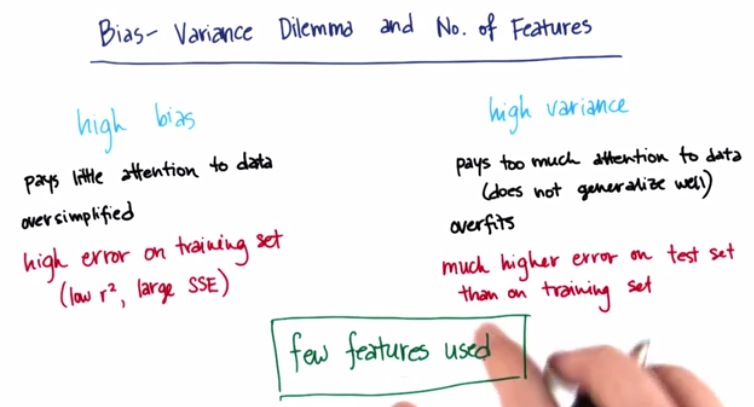 Bias-Variance Dilemma and No. of Features
high bias
pays little attention to data
oversimplified
high error on training set
(low r², large SSE)
high variance
pays too much attention to data
(does not generalize well)
overfits
much higher error on test set
than on training set
few features used